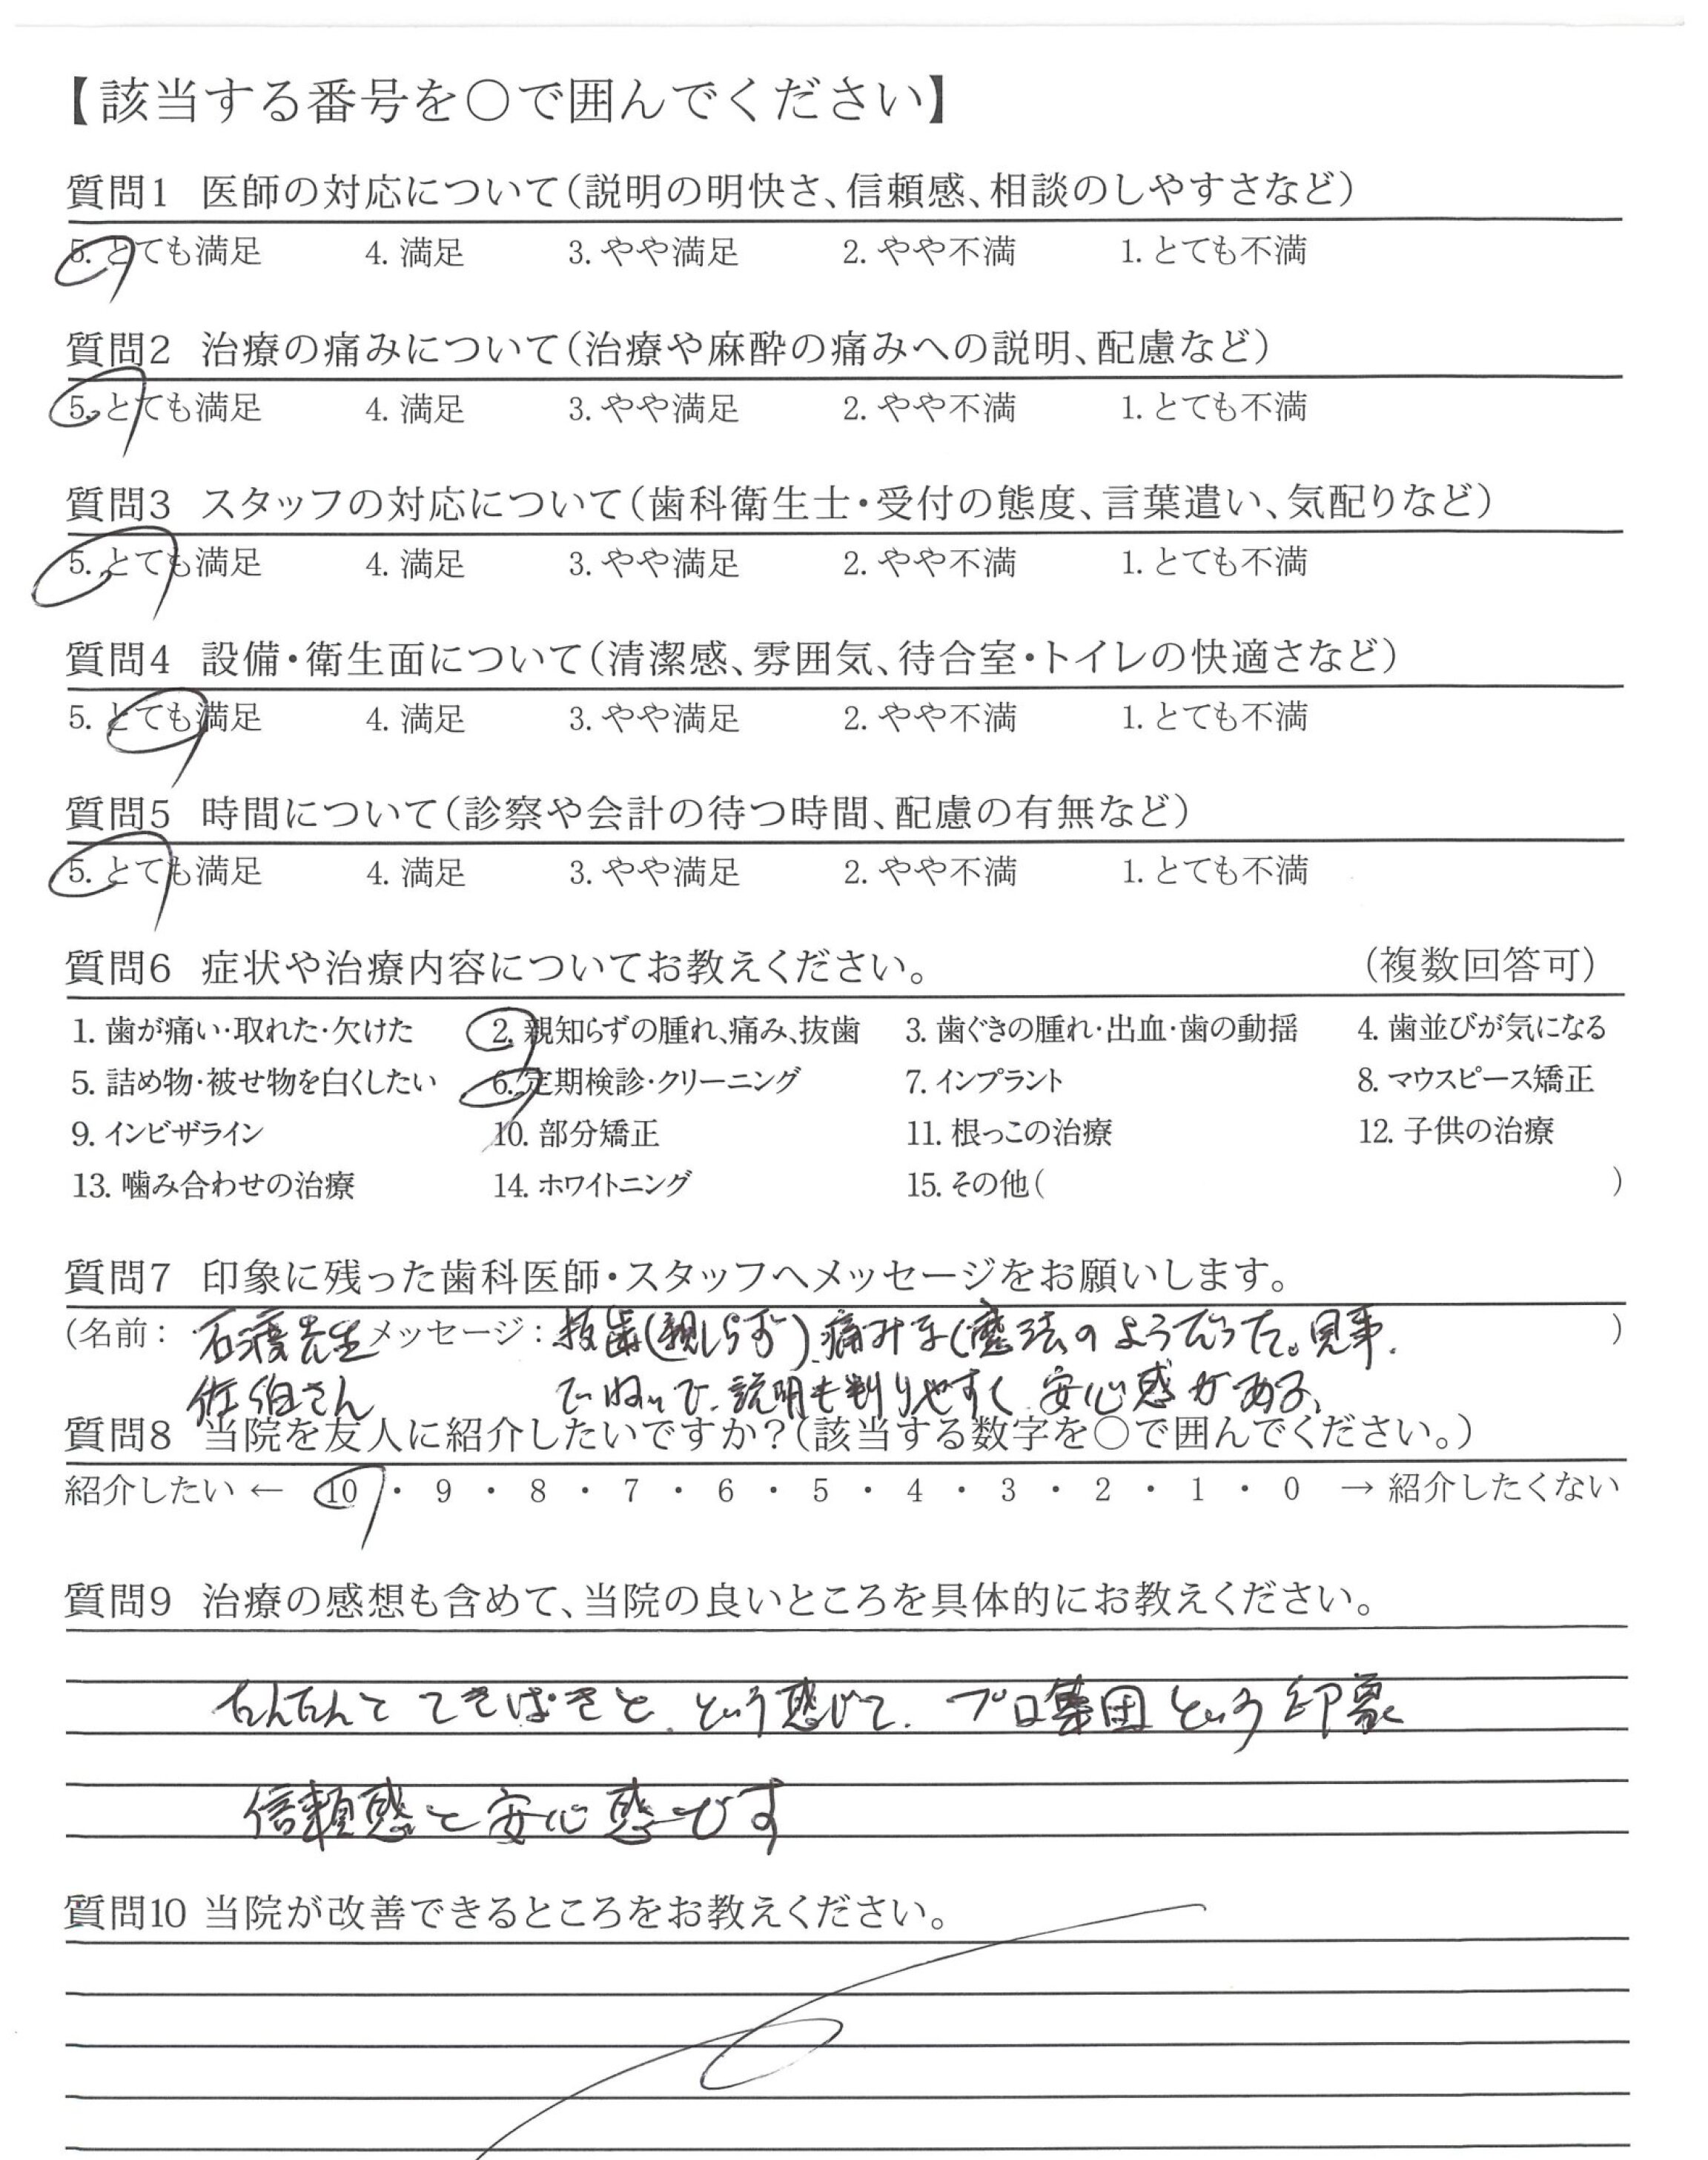 【該当する番号を○で囲んでください】
質問1 医師の対応について(説明の明快さ、信頼感、相談のしやすさなど)
5. とても満足 4. 満足 3. やや満足 2. やや不満 1. とても不満
質問2 治療の痛みについて(治療や麻酔の痛みへの説明、配慮など)
5. とても満足 4. 満足 3. やや満足 2. やや不満 1. とても不満
質問3 スタッフの対応について(歯科衛生士・受付の態度、言葉遣い、気配りなど)
5. とても満足 4. 満足 3. やや満足 2. やや不満 1. とても不満
質問4 設備・衛生面について(清潔感、雰囲気、待合室・トイレの快適さなど)
5. とても満足 4. 満足 3. やや満足 2. やや不満 1. とても不満
質問5 時間について(診察や会計の待つ時間、配慮の有無など)
5. とても満足 4. 満足 3. やや満足 2. やや不満 1. とても不満
質問6 症状や治療内容についてお教えください。 (複数回答可)
1. 歯が痛い・取れた・欠けた 2. 親知らずの腫れ、痛み、抜歯 3. 歯ぐきの腫れ・出血・歯の動揺 4. 歯並びが気になる
5. 詰め物・被せ物を白くしたい 6. 定期検診・クリーニング 7. インプラント 8. マウスピース矯正
9. インビザライン 10. 部分矯正 11. 根っこの治療 12. 子供の治療
13. 噛み合わせの治療 14. ホワイトニング 15. その他( )
質問7 印象に残った歯科医師・スタッフへメッセージをお願いします。
(名前: 石渡先生 メッセージ: 抜歯(親しらず)、痛みなく魔法のようだった。見事. )
佐伯さん ていねいで、説明も判りやすく、安心感がある、
質問8 当院を友人に紹介したいですか?(該当する数字を○で囲んでください。)
紹介したい ← 10 ・ 9 ・ 8 ・ 7 ・ 6 ・ 5 ・ 4 ・ 3 ・ 2 ・ 1 ・ 0 → 紹介したくない
質問9 治療の感想も含めて、当院の良いところを具体的にお教えください。
たんたんと てきぱきと、という感じで、プロ集団という印象
信頼感と安心感です
質問10 当院が改善できるところをお教えください。